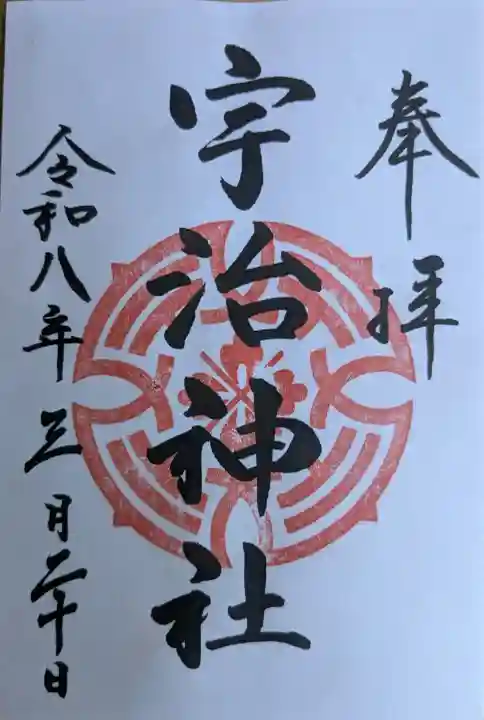 奉拝
宇治神社
令和八年三月二十日